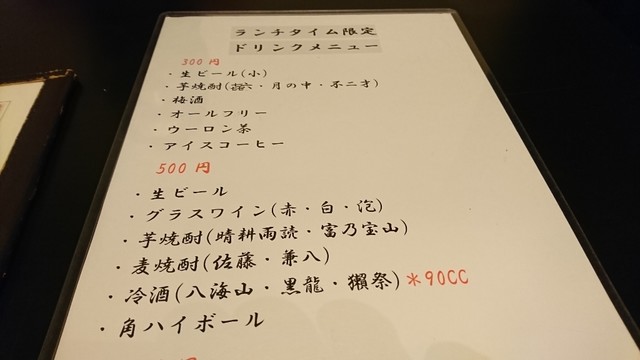 ランチタイム限定
ドリンクメニュー
300円
・生ビール(小)
・芋焼酎(・月の中・不二才)
・梅酒
・オールフリー
・ウーロン茶
・アイスコーヒー
500円
・生ビール
・グラスワイン(赤・白・泡)
・芋焼酎(晴耕雨読・富乃宝山)
・麦焼酎(佐藤・兼八)
・冷酒(八海山・黒龍・獺祭)*90CC
・角ハイボール